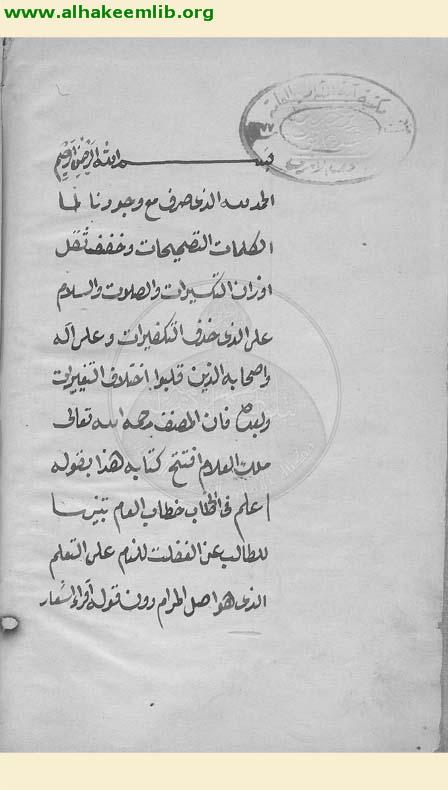 www.alhakeemlib.org
بسم الله الرحمن الرحيم
الحمد لله الذى صرف مع وجودنا لها
الكلمات التصحيحات وخفف ثقل
اوزان التكسيرات والصلات والسلام
على الذى حذف التكفيرات وعلى آله
واصحابه الذين قلبوا اختلاف التغييرات
وبعد فان المصنف رحمه الله تعالى
ملك العلام افتتح كتابه هذا بقوله
اعلم فى الخطاب خطاب العام تنبيها
للطالب عن الغفلت للنوم على التعلم
الذى هو اصل المرام دون قوله اقراء اشعار